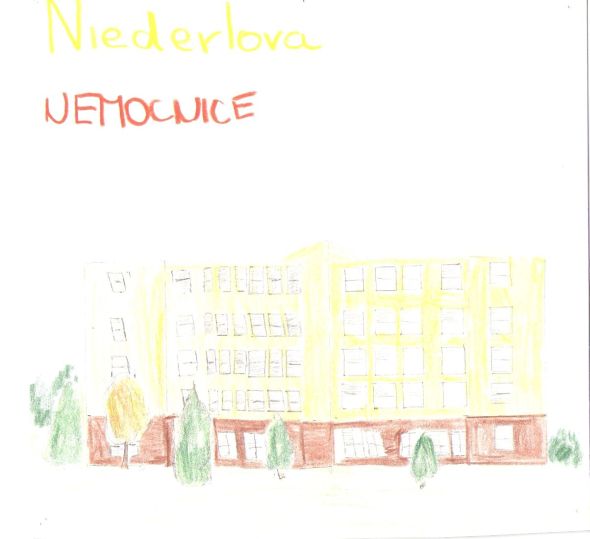 Niederlova
NEMOCNICE